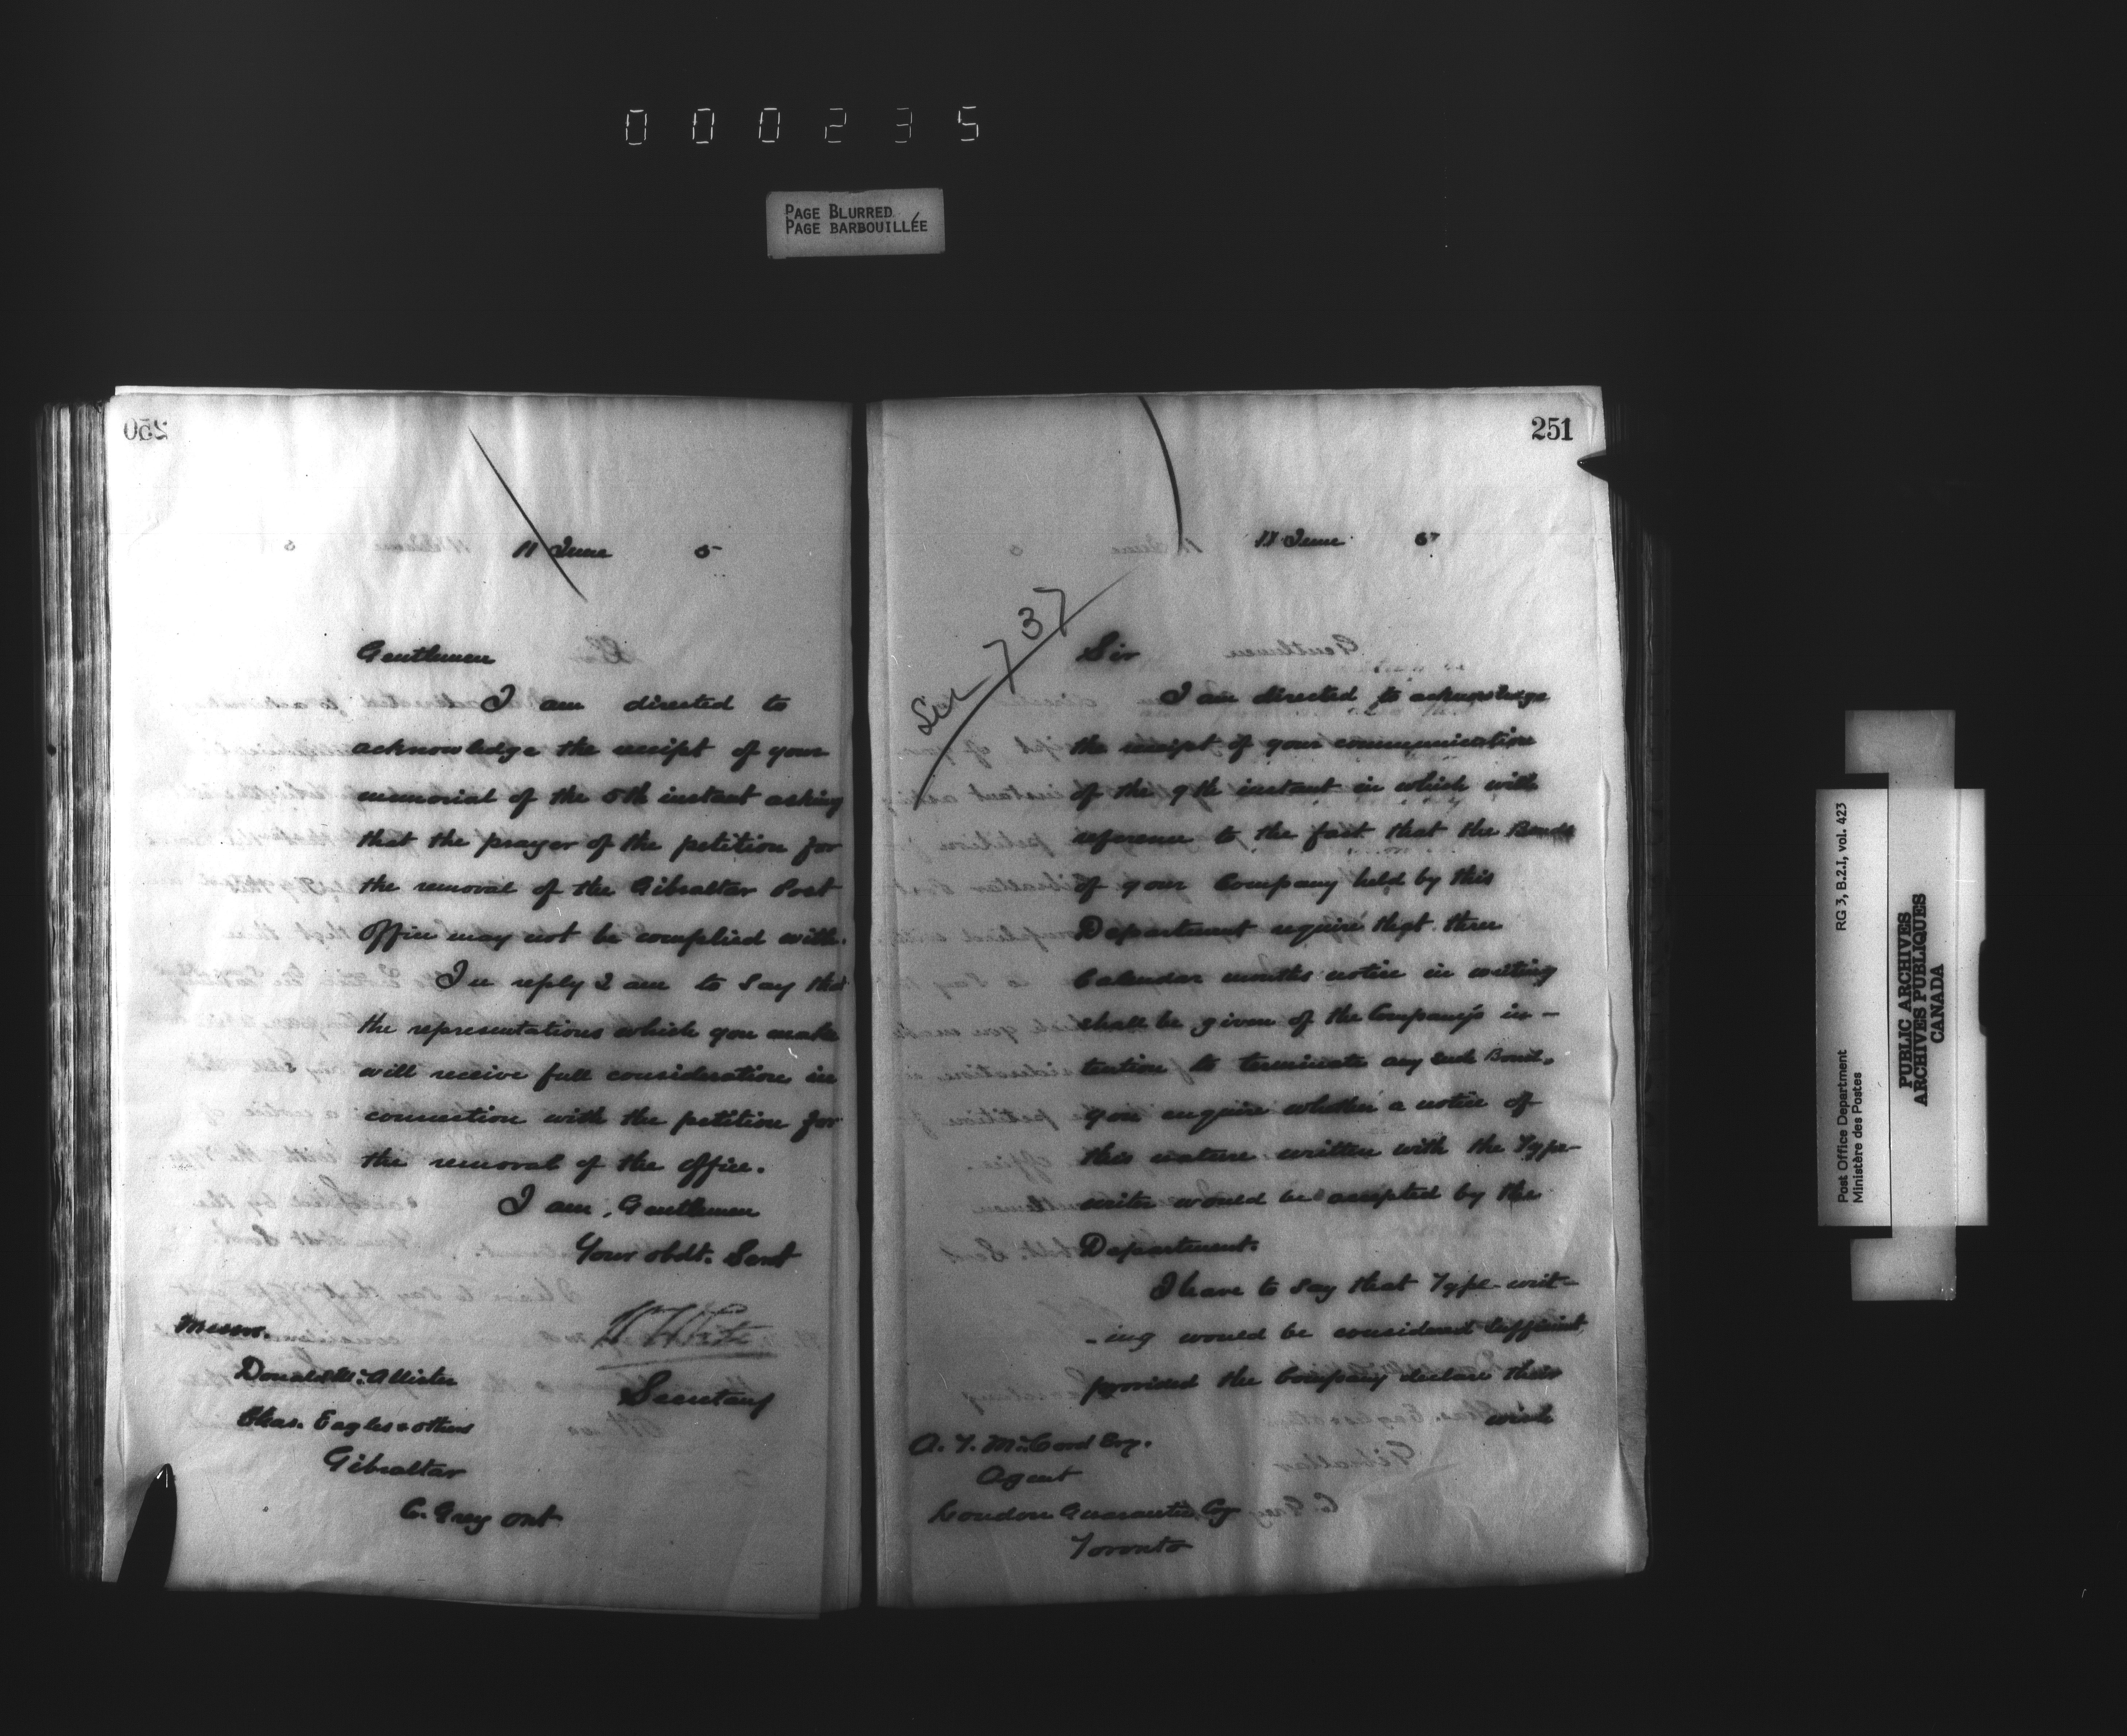 000235
PAGE BLURRED
PAGE BARBOUILLÉE
250
11 June 5
Gentlemen
I am directed to
acknowledge the receipt of your
memorial of the 5th instant asking
that the prayer of the petition for
the removal of the Gibraltar Post
Office may not be complied with.
In reply I am to say that
the representations which you make
will receive full consideration in
connection with the petition for
the removal of the office.
I am, Gentlemen
Your obdt. Sert
Secretary
Messrs.
Donald McAllister
Chas. Eagles & others
Gibraltar
C. Grey Ont
251
11 June 5
737
Sir
I am directed to acknowledge
the receipt of your communication
of the 9th instant in which with
reference to the fact that the Bonds
of your Company held by this
Department require that three
Calendar months notice in writing
shall be given of the Company's in-
tention to terminate any such Bond,
you enquire whether a notice of
this nature written with the Type-
writer would be accepted by the
Department.
I have to say that Type-writ-
-ing would be considered sufficient
provided the Company declare their
wish
A. T. McCord Esq.
Agent
London Guarantee Coy
Toronto
Post Office Department RG 3, B.2.I, vol. 423
Ministère des Postes
PUBLIC ARCHIVES
ARCHIVES PUBLIQUES
CANADA